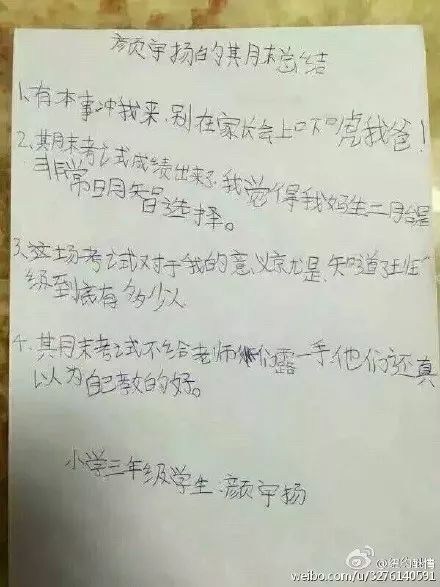 颜宇扬的期末总结
1.有本事冲我来,别在家长会上吓唬我爸!
2.期末考试成绩出来了,我觉得我妈生二胎是
非常明智选择。
3.这场考试对于我的意义就是,知道了班
级到底有多少人
4.期末考试不给老师们露一手,他们还真
以为自己教的好。
小学三年级学生:颜宇扬
weibo.com/u/3276140591